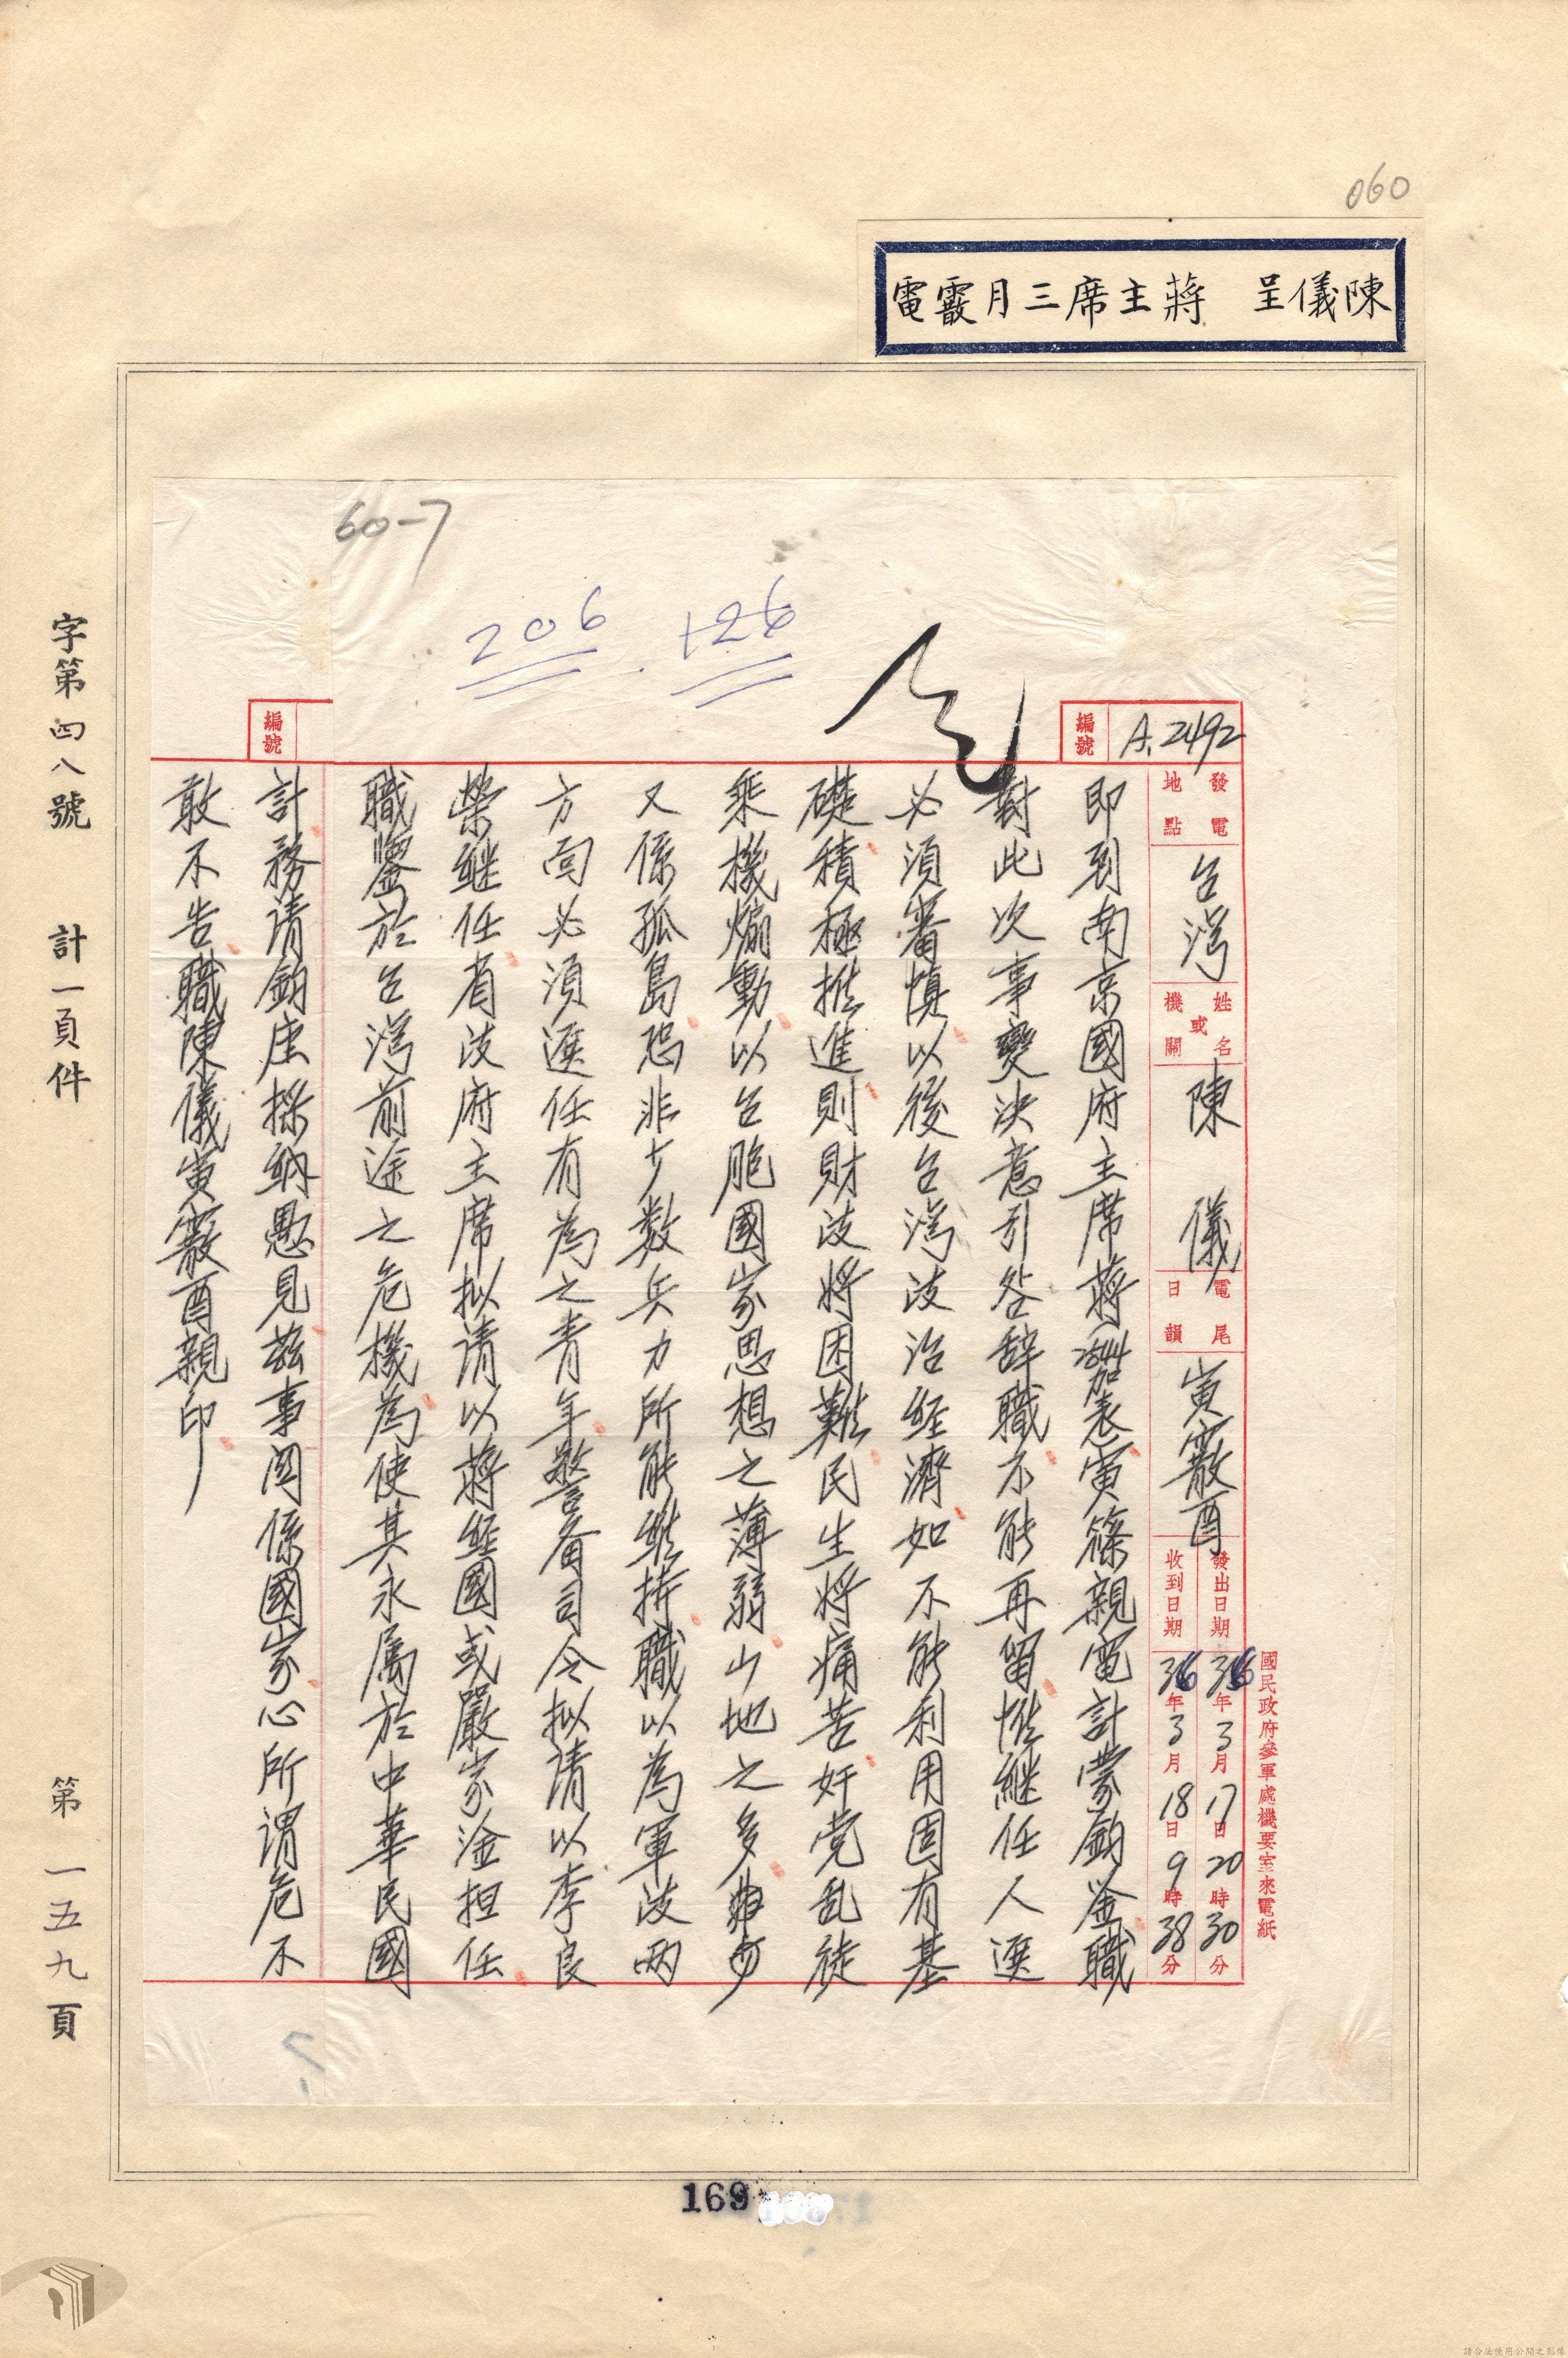 060
陳儀呈　蔣主席三月霰電
60-7
206
126
編號
A.2492
國民政府參軍處機要室來電紙
發電地點
台灣
姓名或機關
陳儀
電尾日韻
寅霰酉
發出日期
36年3月17日20時30分
收到日期
36年3月18日9時38分
即到南京國府主席蔣2544加表寅篠親電計蒙鈞鉴職
對此次事變決意引咎辞職不能再留惟継任人選
必須審慎以後台灣政治経濟如不能利用固有基
礎積極推進則財政将困難民生将痛苦奸党乱徒
乘機煽動以台胞國家思想之薄弱山地之多
又係孤島恐非少数兵力所能維持職以為軍政两
方面必須選任有為之青年警备司令拟请以李良
榮継任省政府主席拟请以蔣経國或嚴家淦担任
職鑒於台灣前途之危機為使其永属於中華民國
編號
計務请鈞座採納愚見茲事関係國家心所谓危不
敢不告職陳儀寅霰酉親印
字第四八號　計一頁件　第一五九頁
169
請合法使用公開之影像